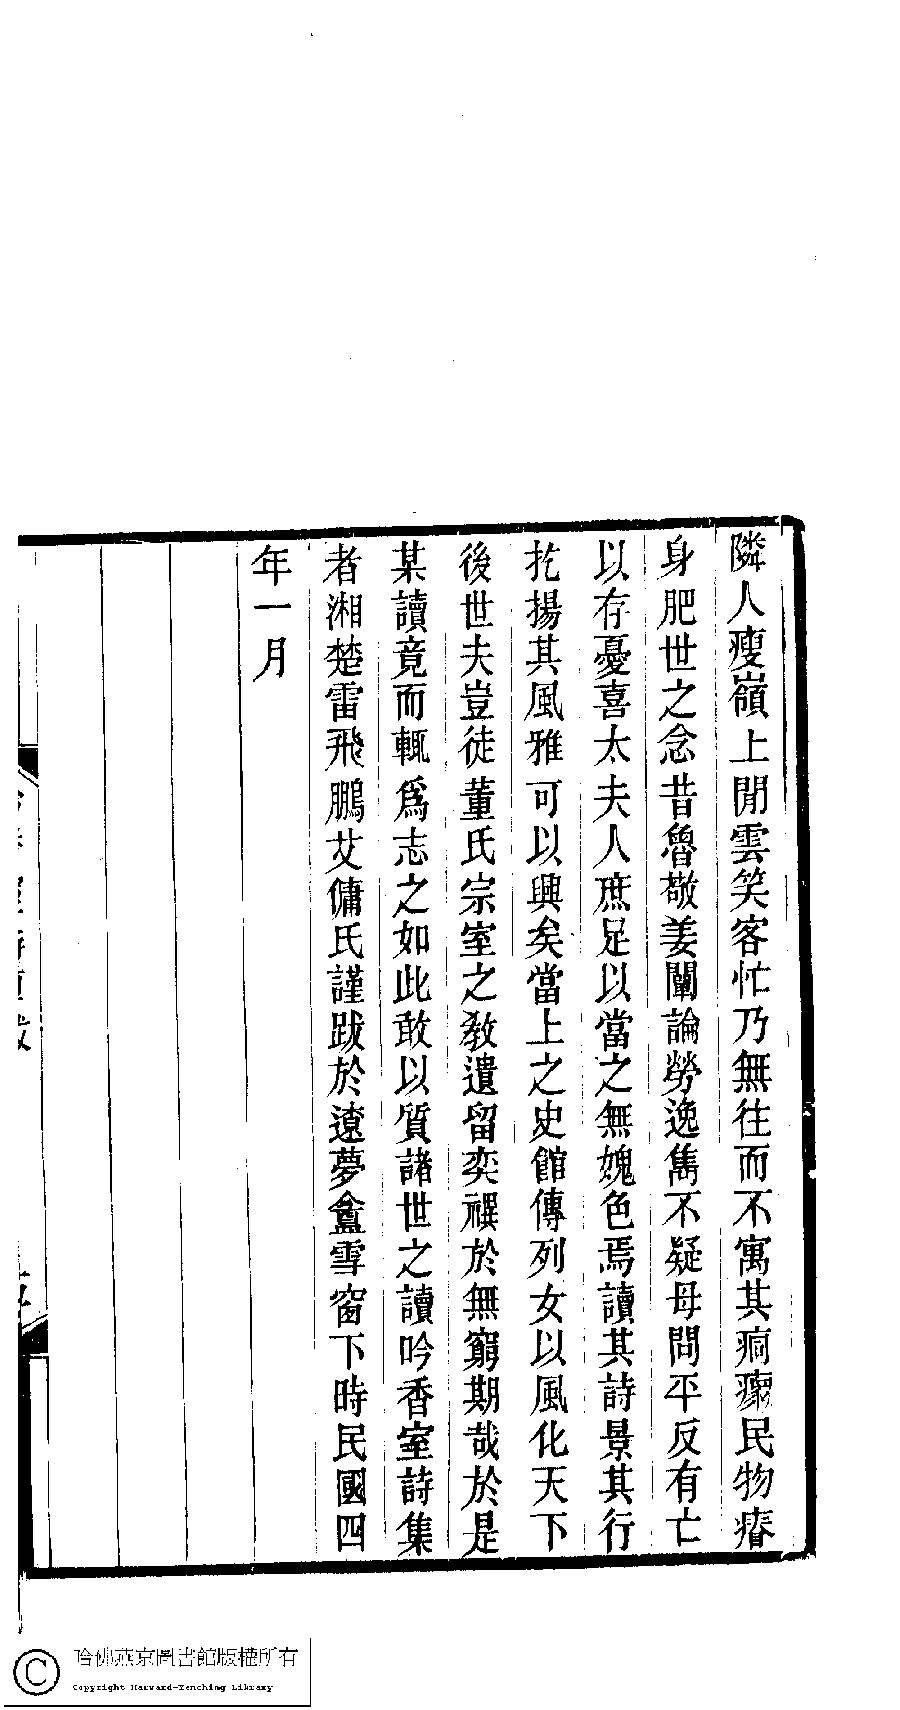 隣人瘦嶺上閒雲笑客忙乃無往而不寓其痌瘝民物瘠
身肥世之念昔魯敬姜闡論勞逸雋不疑母問平反有亡
以存憂喜太夫人庶足以當之無媿色焉讀其詩景其行
扢揚其風雅可以興矣當上之史館傳列女以風化天下
後世夫豈徒董氏宗室之敎遺留奕禩於無窮期哉於是
某讀竟而輒爲志之如此敢以質諸世之讀吟香室詩集
者湘楚雷飛鵬艾傭氏謹跋於遼夢盦雪窗下時民國四
年一月
哈佛燕京圖書館版權所有
Copyright Harvard-Yenching Library